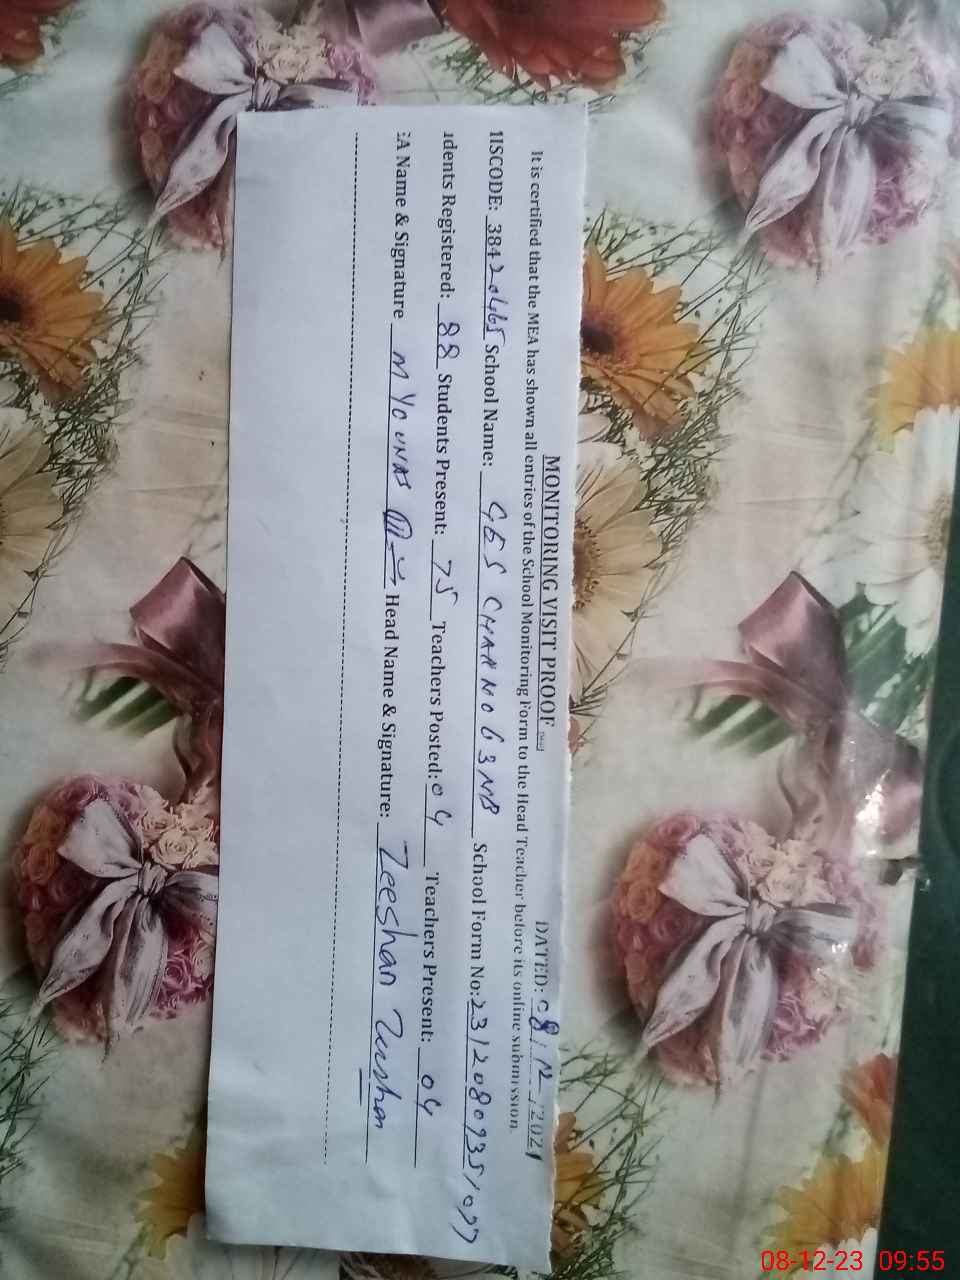 MONITORING VISIT PROOF DATED: 08/12/2021
It is certified that the MEA has shown all entries of the School Monitoring Form to the Head Teacher before its online submission.
MISCODE: 38420465 School Name: GES CHAK NO 63NB School Form No: 23120809351077
idents Registered: 88 Students Present: 75 Teachers Posted: 04 Teachers Present: 04
EA Name & Signature M YOUNAS Head Name & Signature: Zeeshan Zeeshan
08-12-23 09:55